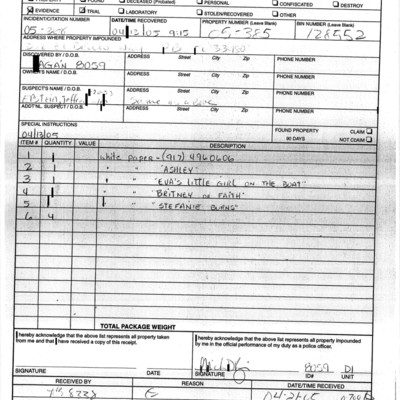 PROPERTY FOUND DECEASED (Probated) PERSONAL CONFISCATED DESTROY
EVIDENCE LABORATORY STOLEN/RECOVERED OTHER
INCIDENT/CITATION NUMBER DATE/TIME RECOVERED PROPERTY NUMBER (Leave Blank) BIN NUMBER (Leave Blank)
05-368 04/13/05 9:15 C5-385 128552
ADDRESS WHERE PROPERTY IMPOUNDED
DISCOVERED BY / D.O.B. ADDRESS Street City Zip PHONE NUMBER
PAGAN 8059
OWNER'S NAME / D.O.B. ADDRESS Street City Zip PHONE NUMBER
SUSPECT'S NAME / D.O.B. ADDRESS Street City Zip PHONE NUMBER
ADDTNL. SUSPECT / D.O.B. ADDRESS Street City Zip PHONE NUMBER
SPECIAL INSTRUCTIONS FOUND PROPERTY CLAIM
04/13/05 90 DAYS NOT CLAIM
ITEM # QUANTITY VALUE DESCRIPTION
1 1 white paper - (917) 4960606
2 1 " " "ASHLEY"
3 1 " " "EVA'S LITTLE GIRL ON THE BOAT"
4 1 " " "BRITNEY OR FAITH"
5 " " "STEFANIE BURNS"
6 4
TOTAL PACKAGE WEIGHT
I hereby acknowledge that the above list represents all property taken from me and that I have received a copy of this receipt.
I hereby acknowledge that the above list represents all property impounded by me in the official performance of my duty as a police officer.
8059 D1
SIGNATURE DATE SIGNATURE ID# UNIT
RECEIVED BY REASON DATE/TIME RECEIVED